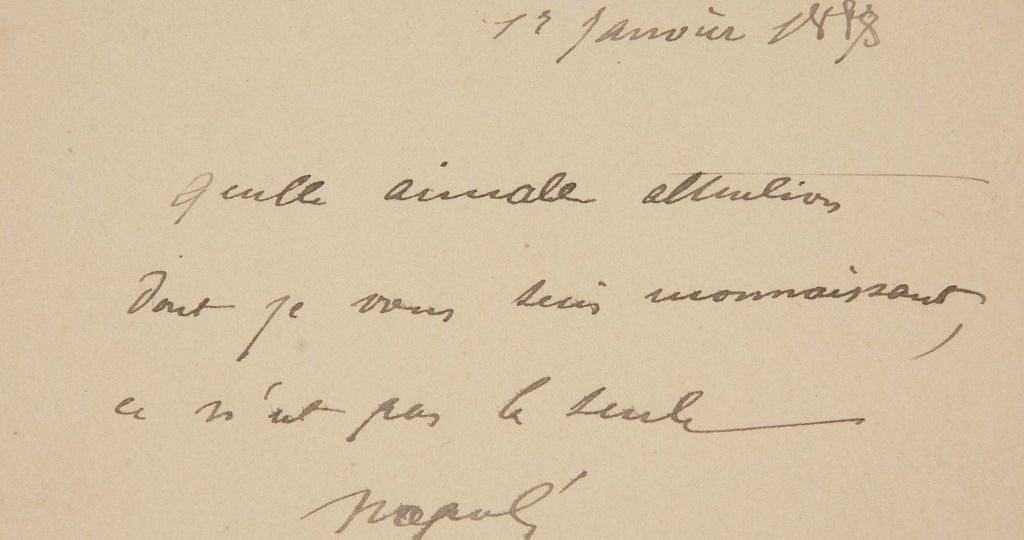 Janvier
quelle aimable attention
dont je vous suis reconnaissant,
ce n'est pas la seule